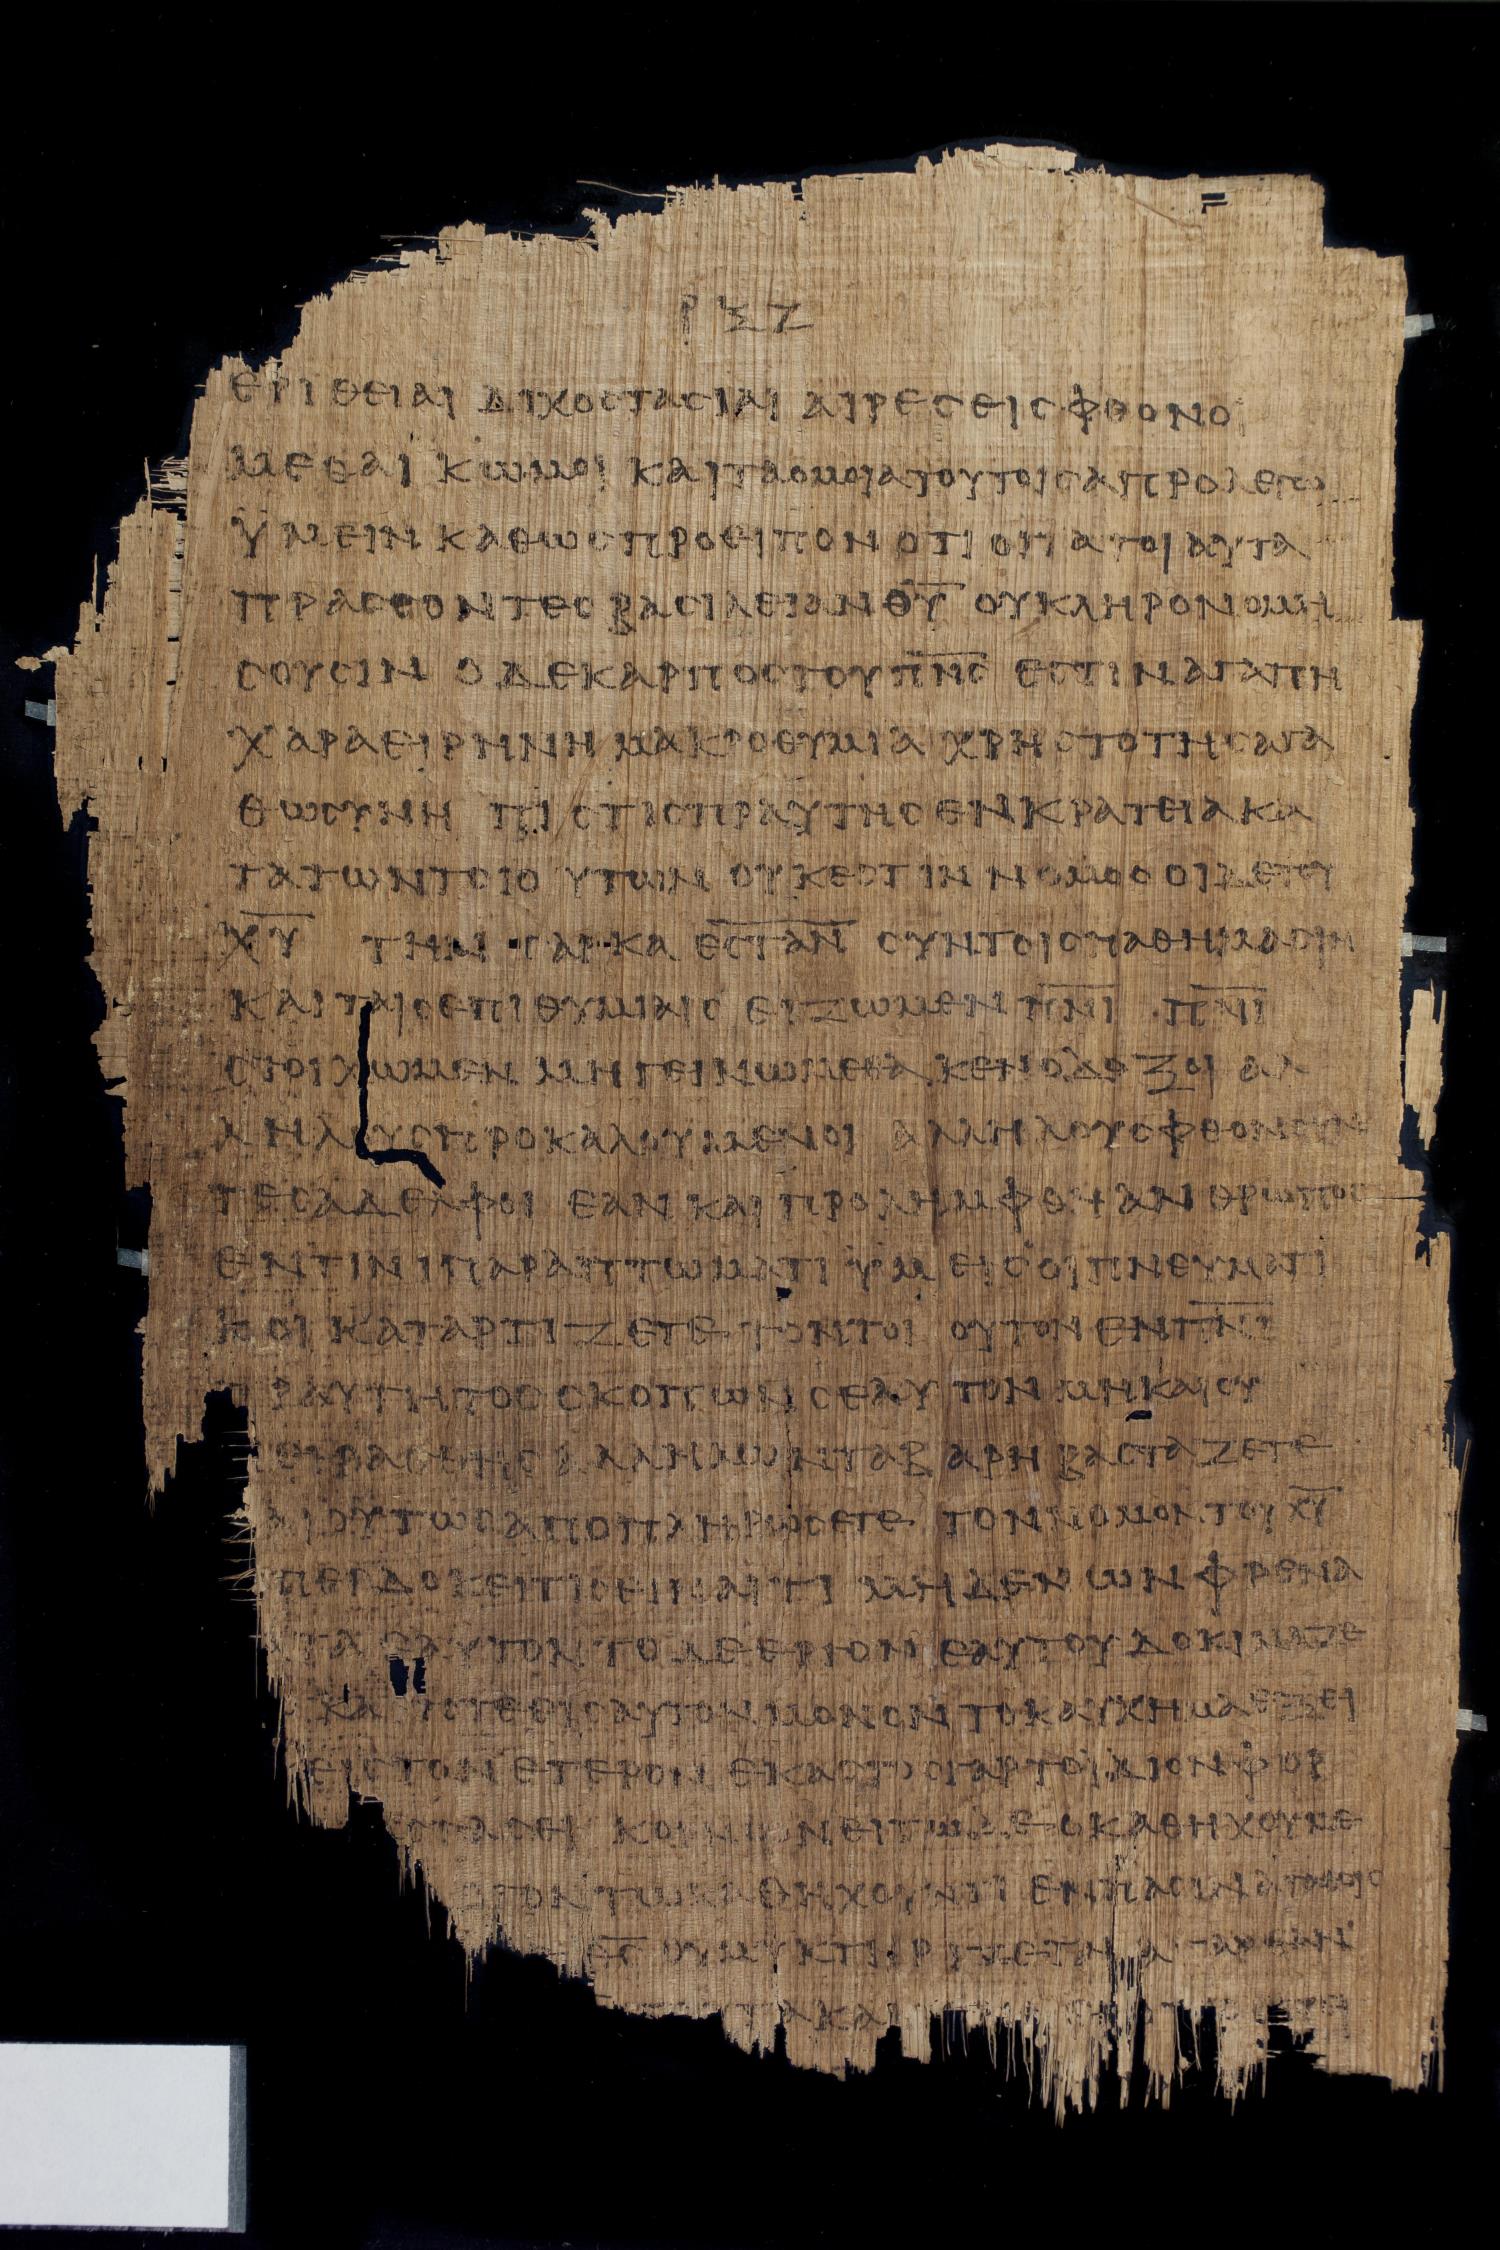 ΡΞΖ
ΕΡΙΘΕΙΑΙ ΔΙΧΟСΤΑСΙΑΙ ΑΙΡΕСΕΙС ΦΘΟΝΟΙ
ΜΕΘΑΙ ΚΩΜΟΙ ΚΑΙ ΤΑ ΟΜΟΙΑ ΤΟΥΤΟΙС Α ΠΡΟΛΕΓΩ
ΫΜΕΙΝ ΚΑΘΩС ΠΡΟΕΙΠΟΝ ΟΤΙ ΟΙ ΤΑ ΤΟΙΑΥΤΑ
ΠΡΑССΟΝΤΕС ΒΑСΙΛΕΙΑΝ Θ̅Υ̅ ΟΥ ΚΛΗΡΟΝΟΜΗ
СΟΥСΙΝ Ο ΔΕ ΚΑΡΠΟС ΤΟΥ Π̅Ν̅С̅ ΕСΤΙΝ ΑΓΑΠΗ
ΧΑΡΑ ΕΙΡΗΝΗ ΜΑΚΡΟΘΥΜΙΑ ΧΡΗСΤΟΤΗС ΑΓΑ
ΘΩСΥΝΗ ΠΙСΤΙС ΠΡΑΥΤΗС ΕΝΚΡΑΤΕΙΑ ΚΑ
ΤΑ ΤΩΝ ΤΟΙΟΥΤΩΝ ΟΥΚ ΕСΤΙΝ ΝΟΜΟС ΟΙ ΔΕ ΤΟΥ
Χ̅Υ̅ ΤΗΝ СΑΡΚΑ Ε̅С̅Τ̅Α̅Ν̅ СΥΝ ΤΟΙС ΠΑΘΗΜΑСΙΝ
ΚΑΙ ΤΑΙС ΕΠΙΘΥΜΙΑΙС ΕΙ ΖΩΜΕΝ Π̅Ν̅Ι̅ Π̅Ν̅Ι̅
СΤΟΙΧΩΜΕΝ ΜΗ ΓΕΙΝΩΜΕΘΑ ΚΕΝΟΔΟΞΟΙ ΑΛ
ΛΗΛΟΥС ΠΡΟΚΑΛΟΥΜΕΝΟΙ ΑΛΛΗΛΟΥС ΦΘΟΝΟΥΝ
ΤΕС ΑΔΕΛΦΟΙ ΕΑΝ ΚΑΙ ΠΡΟΛΗΜΦΘΗ ΑΝΘΡΩΠΟС
ΕΝ ΤΙΝΙ ΠΑΡΑΠΤΩΜΑΤΙ ΫΜΕΙС ΟΙ ΠΝΕΥΜΑΤΙ
ΚΟΙ ΚΑΤΑΡΤΙΖΕΤΕ ΤΟΝ ΤΟΙΟΥΤΟΝ ΕΝ Π̅Ν̅Ι̅
ΠΡΑΥΤΗΤΟС СΚΟΠΩΝ СΕΑΥΤΟΝ ΜΗ ΚΑΙ СΥ
ΠΕΙΡΑСΘΗС ΑΛΛΗΛΩΝ ΤΑ ΒΑΡΗ ΒΑСΤΑΖΕΤΕ
ΚΑΙ ΟΥΤΩС ΑΠΟΠΛΗΡΩСΕΤΕ ΤΟΝ ΝΟΜΟΝ ΤΟΥ Χ̅Υ̅
ΕΙ ΠΕΡ ΔΟΚΕΙ ΤΙС ΕΙΝΑΙ ΤΙ ΜΗΔΕΝ ΩΝ ΦΡΕΝΑ
ΠΑΤΑ ΕΑΥΤΟΝ ΤΟ ΔΕ ΕΡΓΟΝ ΕΑΥΤΟΥ ΔΟΚΙΜΑΖΕ
ΚΑΙ ΤΟΤΕ ΕΙС ΑΥΤΟΝ ΜΟΝΟΝ ΤΟ ΚΑΥΧΗΜΑ ΕΞΕΙ
ΕΙС ΤΟΝ ΕΤΕΡΟΝ ΕΚΑСΤΟС ΓΑΡ ΤΟ ΙΔΙΟΝ ΦΟΡ
ΒΑСΤΑСΕΙ ΚΟΙΝΩΝΕΙΤΩ ΔΕ Ο ΚΑΘΗΧΟΥΜΕ
ΛΟΓΟΝ ΤΩ ΚΑΘΗΧΟΥΝΤΙ ΕΝ ΠΑСΙΝ ΑΓΑΘΟΙС
Θ̅С̅ ΟΥ ΜΥΚΤΗΡΙΖΕΤΑΙ